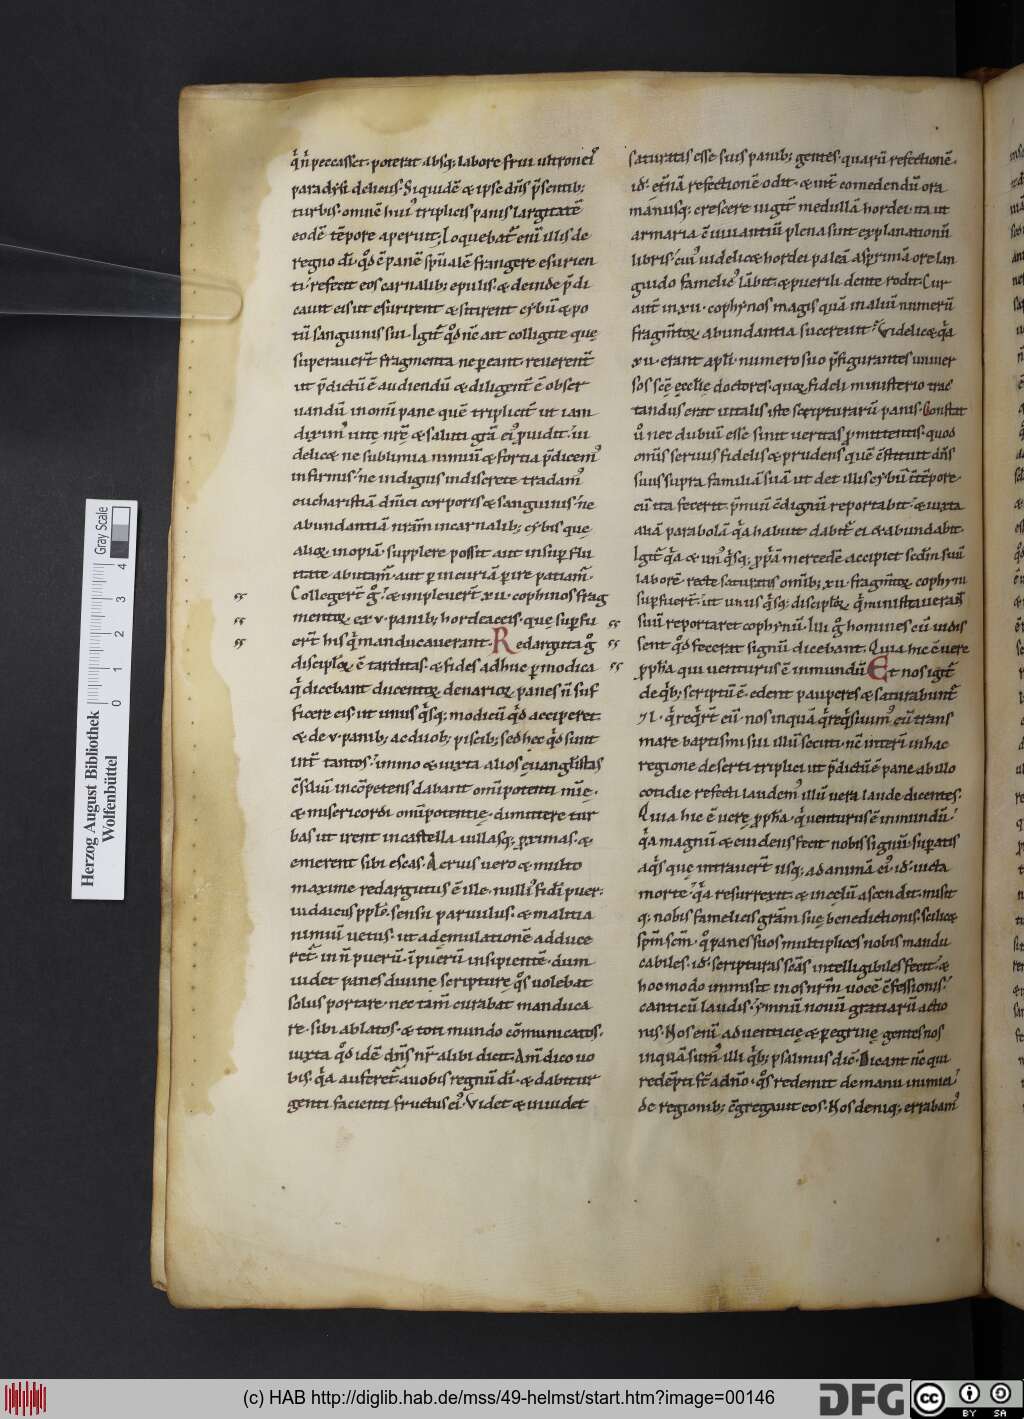 q̄ n̄ peccasset. poterat absq; labore frui ultronei᷒
paradysi deliciis. Siquidē & ipse dn̄s p̄sentib;
turbis. omnē hui᷒ triplicis panis largitatē
eodē tēpore aperuit; Loquebat᷑ eni illis de
regno dī. qd̄ ē panē sp̄ualē frangere esurien
ti. refecit eos carnalib; epulis. & deinde p̄di
cauit eis ut esurirent & sitirent cybū & po
tū sanguinis sui. Igit᷑ qd̄ nē ait colligite quę
superauer̄t fragmenta ne pereant. reuerent᷑
ut p̄dictū ē audiendū & diligent᷑ ē obser
uandū in om̄i pane quē triplicit᷑ ut iam
dixim᷒ uitę nr̄ę & saluti grā ei᷒ p̄uidit. ui
delicet ne sublimia nimiū & fortia p̄dicem᷒
infirmis. ne indignis indiscrete tradam᷒
eucharistiā dn̄ici corporis & sanguinis. ne
abundantiā nr̄am in carnalib; cybis quę
alioꝝ inopiā supplere possit aut in sup̄flui
tate abutam᷑. aut p incuriā p̄ire patiam᷑.
Colleger̄t ḡ. & impleuer̄t .xii. cophinos frag
mentoꝝ ex .v. panib; hordeaceis. quę sup̄fu
er̄t his q̄ manducauerant. Redarguta ḡ
discipl̄oꝝ ē tarditas. & fides adhuc p modica
q̄ dicebant ducentoꝝ denarioꝝ panes n̄ suf
ficere eis. ut unus q̄sq; modicū qd̄ acciperet.
& de .v. panib; ac duob; piscib; sed hęc qd̄ sunt
int᷑ tantos. immo & iuxta alios ęuanglistas
c̄siliū incōpetens dabant om̄ipotenti mię.
& misericordi om̄ipotentię. dimittere tur
bas ut irent in castella uillasq; p̄ximas. &
emerent sibi escas. Acrius uero & multo
maxime redargutus ē ille. nulli᷒ fidi puer.
iudaicus ppl̄s. sensu paruulus. & malitia
nimiū uetus. ut ad ęmulationē adduce
ret᷑. in n̄ puerū. i puerū insipientē. dum
uidet panes diuinę scripturę q̄s uolebat
solus portare. nec tam̄ curabat manduca
re. sibi ablatos. & toti mundo cōmunicatos.
iuxta qd̄ idē dn̄s nr̄ alibi dicit. Am̄ dico uo
bis. q̄a auferet᷑ a uobis regnū dī. & dabitur
genti facienti fructus ei᷒. Videt & inuidet
saturatas esse suis panib; gentes. quarū refectionē.
id ēt̄nā refectionē odit. & int᷑ comedendū ora
man̄usq; crescere iugit᷑ medullā hordei. ita ut
armaria c̄uiuantiū plena sint explanationū
libris. cui᷒ uidelicet hordei paleā asp̄rimā ore lan
guido famelic᷒ lābit. & puerili dente rodit. Cur
aut̄ in .xii. cophynos magis quā in aliū numerū
fragm̄toꝝ abundantia succreuit? Videlicet q̄a
.xii. erant apli. numero suo p̄figurantes uniuer
sos scē ęccl̄ie doctores. quoꝝ fideli ministerio trac
tandus erat uitalis iste scripturarū panis. Constat
ū nec dubiū esse sinit ueritas pmittentis. quod
om̄is seruus fidelis & prudens quē c̄stituit dn̄s
suus supra familiā suā ut det illis cybū ī tēpore.
cū ita fecerit. p̄miū c̄dignū reportabit. & iuxta
aliā parabolā q̄a habuit dabit᷑ ei & abundabit.
Igit᷑ q̄a & un᷒ q̄sq; pp̄ā mercedē accipiet scdm̄ suū
laborē. recte saturatis om̄ib; .xii. fragm̄toꝝ cophyni
sup̄fuer̄t. ut unus q̄sq; discipl̄oꝝ q̄ ministraueran̄
suū reportaret cophynū. Illi ḡ homines cū uidis
sent qd̄ fecerat signū dicebant. Quia hic ē uere
ppha qui uenturus ē in mundū. Et nos igit᷑
de q̄b; scriptū ē. edent pauperes & saturabunt᷑
q̄ req̄r̄t eū. nos inquā q̄ req̄siuim᷒ eū trans
mare baptismi sui illū secuti. nē inter̄i in hac
regione deserti triplici ut p̄dictū ē pane ab illo
cotidie refecti laudem᷒ illū uera laude dicentes.
Quia hic ē uerę ppha. q̄ uenturus ē in mundū.
q̄a magnū & euidens fecit nobis signū. sup̄atis
aq̄s quę intrauer̄t usq; ad animā ei᷒. id. uicta
morte. q̄a resurrexit. & in cęlū ascendit. misit
q; nobis famelicis gram̄ suę benedictionis. scilicet
sp̄m sc̄m. q̄ panes suos multiplices nobis mandu
cabiles. id. scripturas sc̄as intelligibiles fecit. &
hoc modo inmisit in os nr̄m uocē c̄fessionis.
canticū laudis. ymnū nouū gratiarū actio
nis. Nos enī aduenticię & pegrinę gentes nos
inquā sum᷒ illi q̄b; psalmus dic̄. Dicant nc̄ qui
redēpti st̄ a dn̄o. q̄s redemit de manu inimici.
de regionib; c̄gregauit eos. Nos deniq; errabam᷒
Herzog August Bibliothek
Wolfenbüttel
Gray Scale
0 1 2 3 4
(c) HAB http://diglib.hab.de/mss/49-helmst/start.htm?image=00146
DFG
cc BY SA